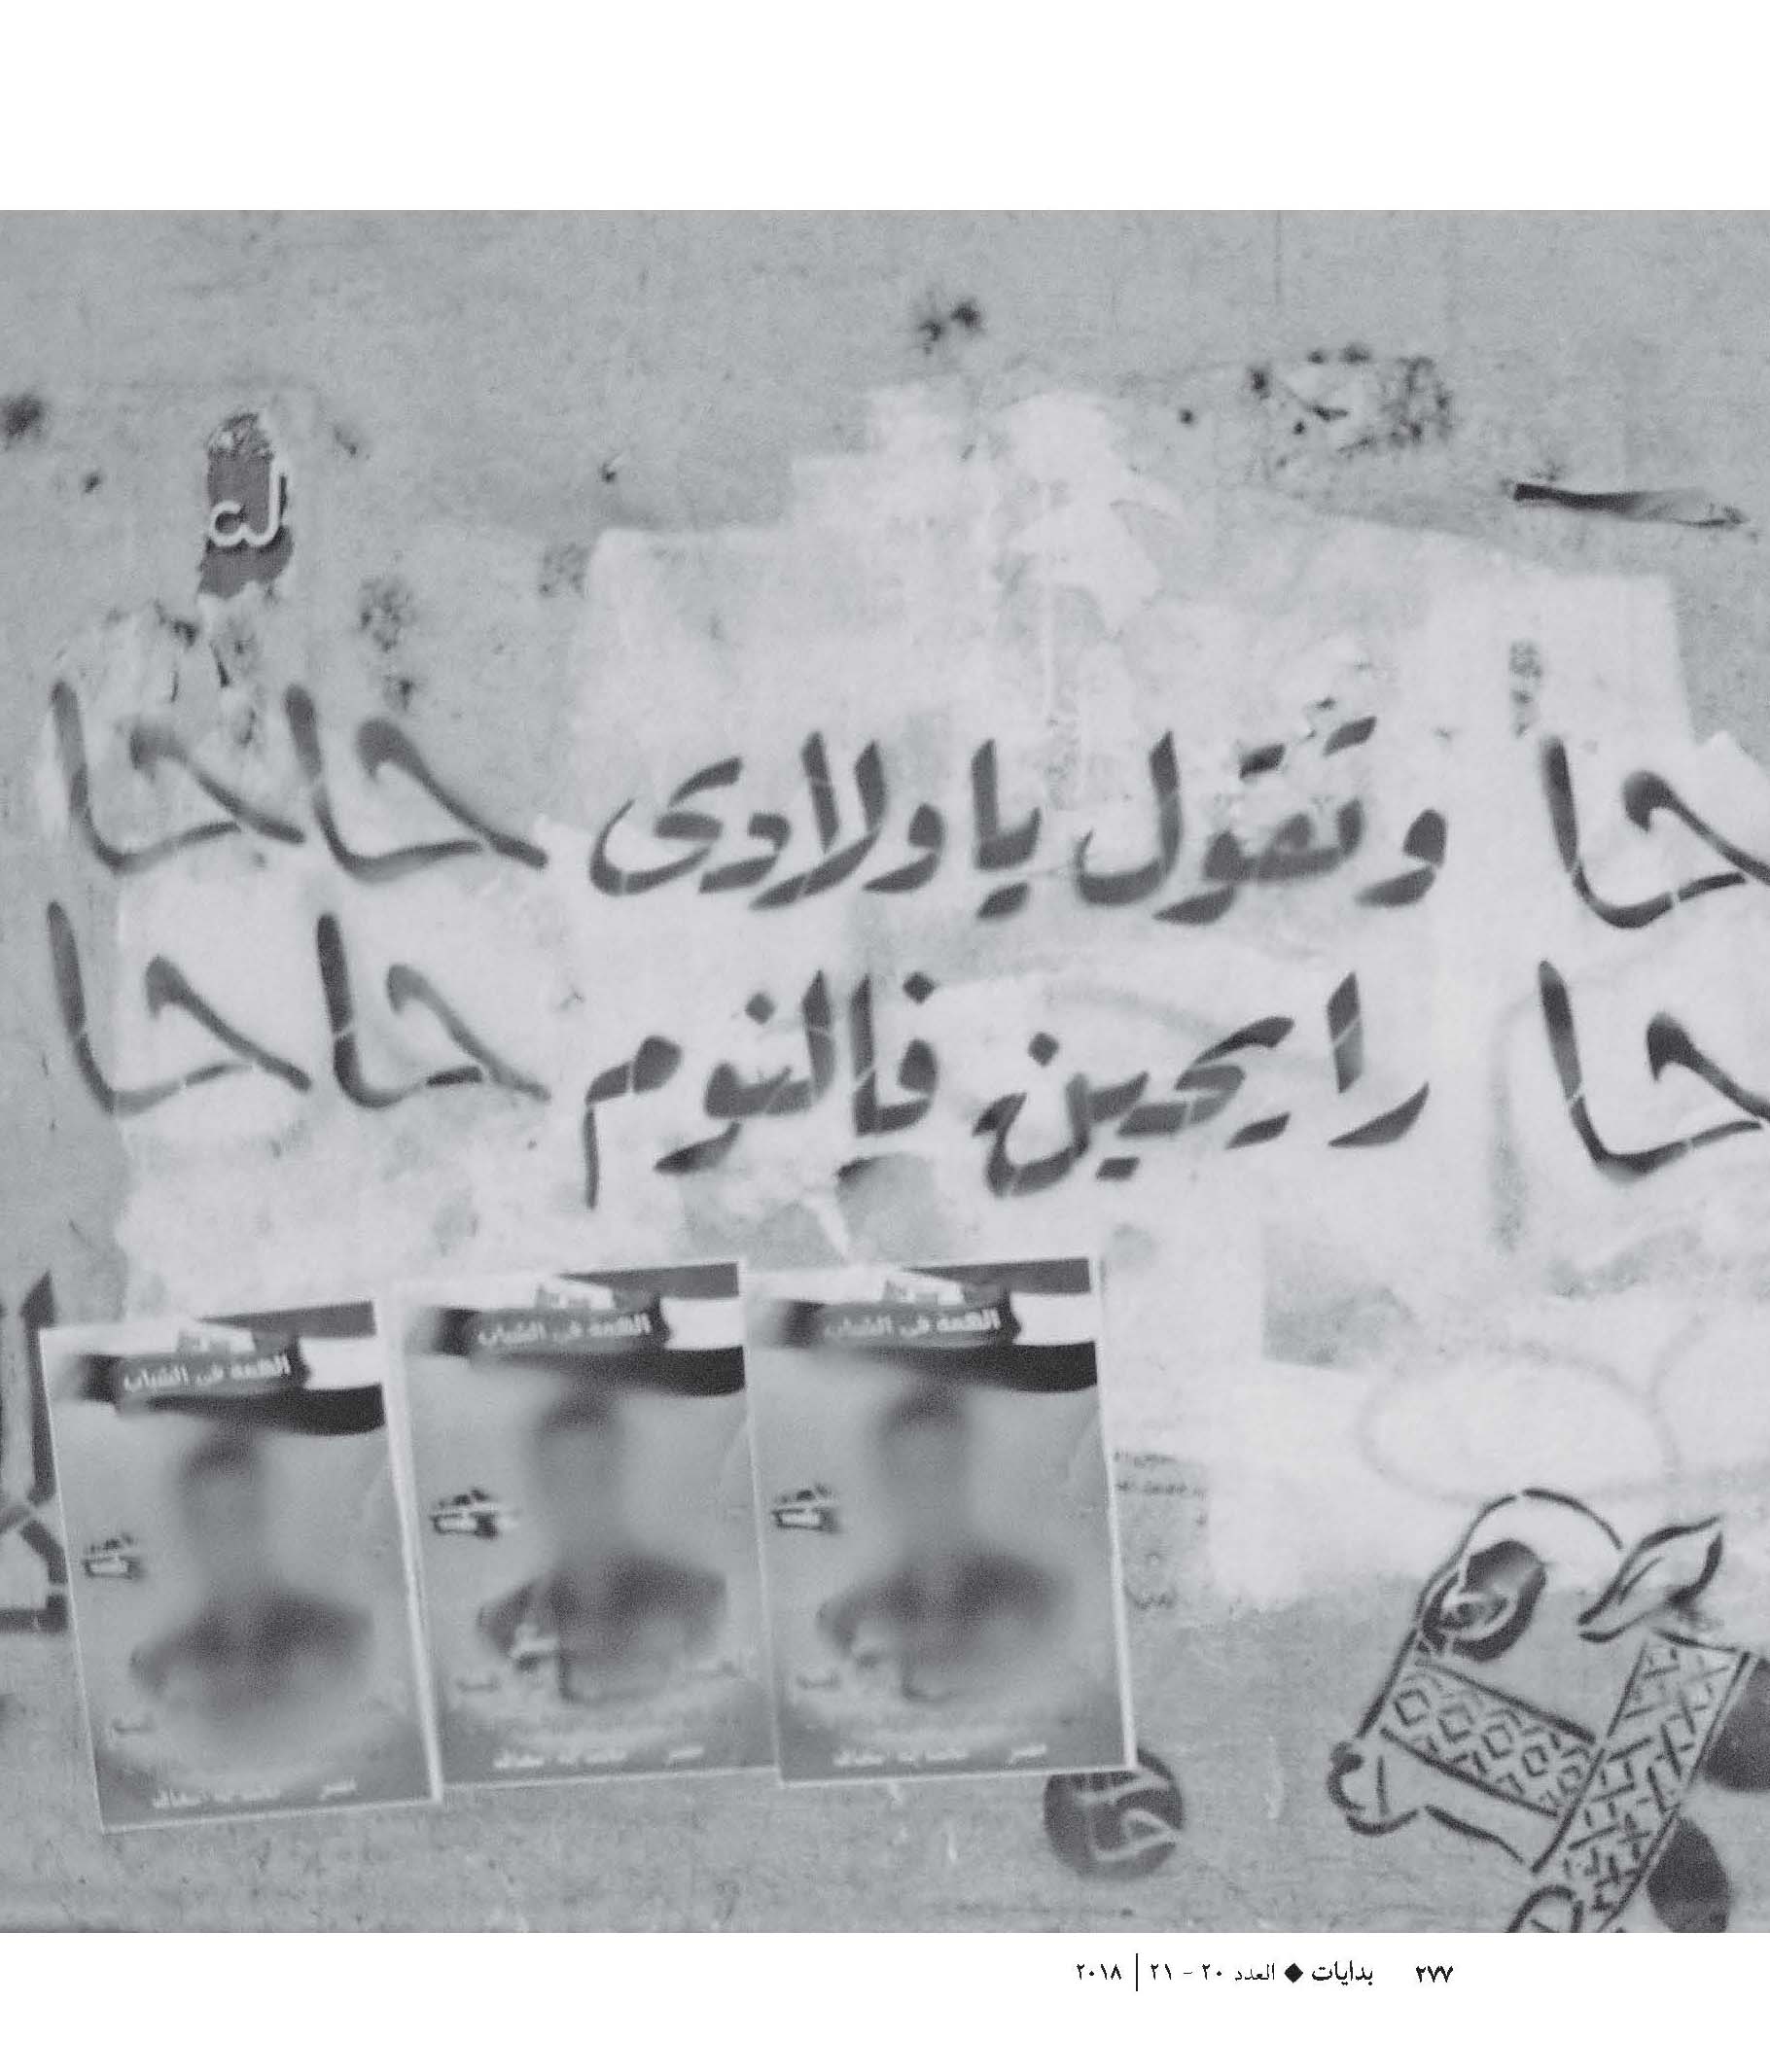 حا وتقول يا ولادى حاحا
حا رايحين فالنوم حاحا
الهمة فى الشباب
الهمة فى الشباب
الهمة فى الشباب
مصر
مصر
مصر
٢٧٧ بدايات ◆ العدد ٢٠ - ٢١ | ٢٠١٨